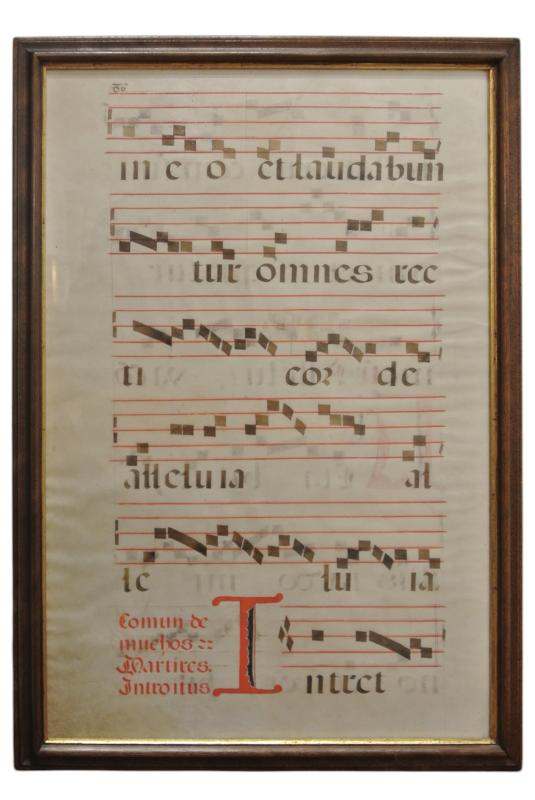 in e o et laudabun
tur omnes rec
ti cor de
alleluia al
le lu ia
Comun de
muchos
Martires.
Introitus
Intret